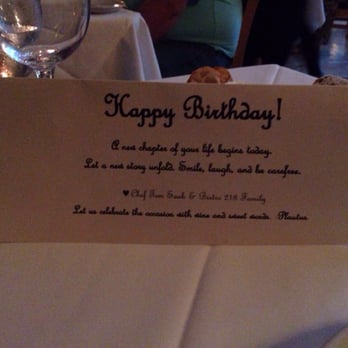 Happy Birthday!
A new chapter of your life begins today.
Let a new story unfold. Smile, laugh, and be carefree.
♥Chef & Bistro 218 Family
Let us celebrate the occasion with wine and sweet words. Plautus